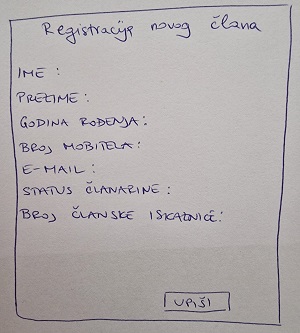 Registracija novog člana
IME :
PREZIME :
GODINA ROĐENJA :
BROJ MOBITELA :
E-MAIL :
STATUS ČLANARINE :
BROJ ČLANSKE ISKAZNICE :
UPIŠI